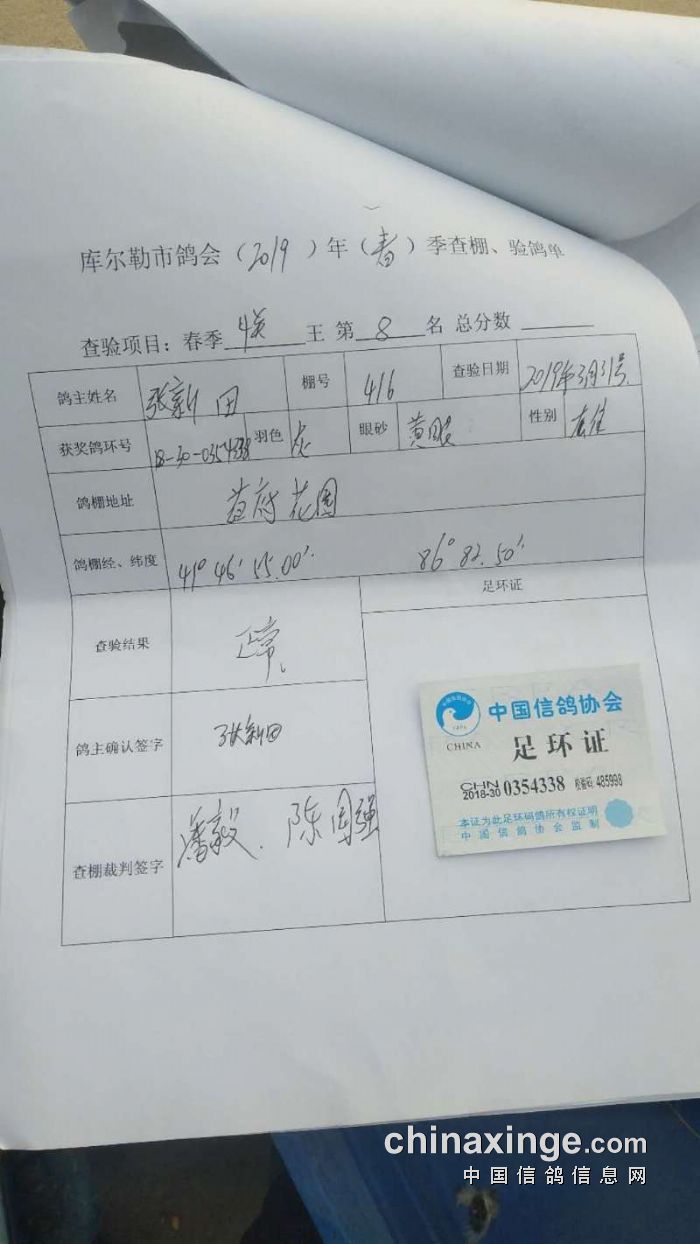 库尔勒市鸽会（2019）年（春）季查棚、验鸽单
查验项目：春季 4关 王 第 8 名 总分数
鸽主姓名 张新田 棚号 416 查验日期 2019年3月31号
获奖鸽环号 18-30-0354338 羽色 灰 眼砂 黄眼 性别
鸽棚地址 首府花园
鸽棚经、纬度 41° 46′ 55.00′ 86° 82.50′
足环证
查验结果 正常、
鸽主确认签字 张新田
查棚裁判签字 潘毅、陈国强
中国信鸽协会
CHINA 足环证
CHN
2018-30 0354338 校验码 485998
本证为此足环码鸽所有权证明
中国信鸽协会监制
chinaxinge.com
中国信鸽信息网